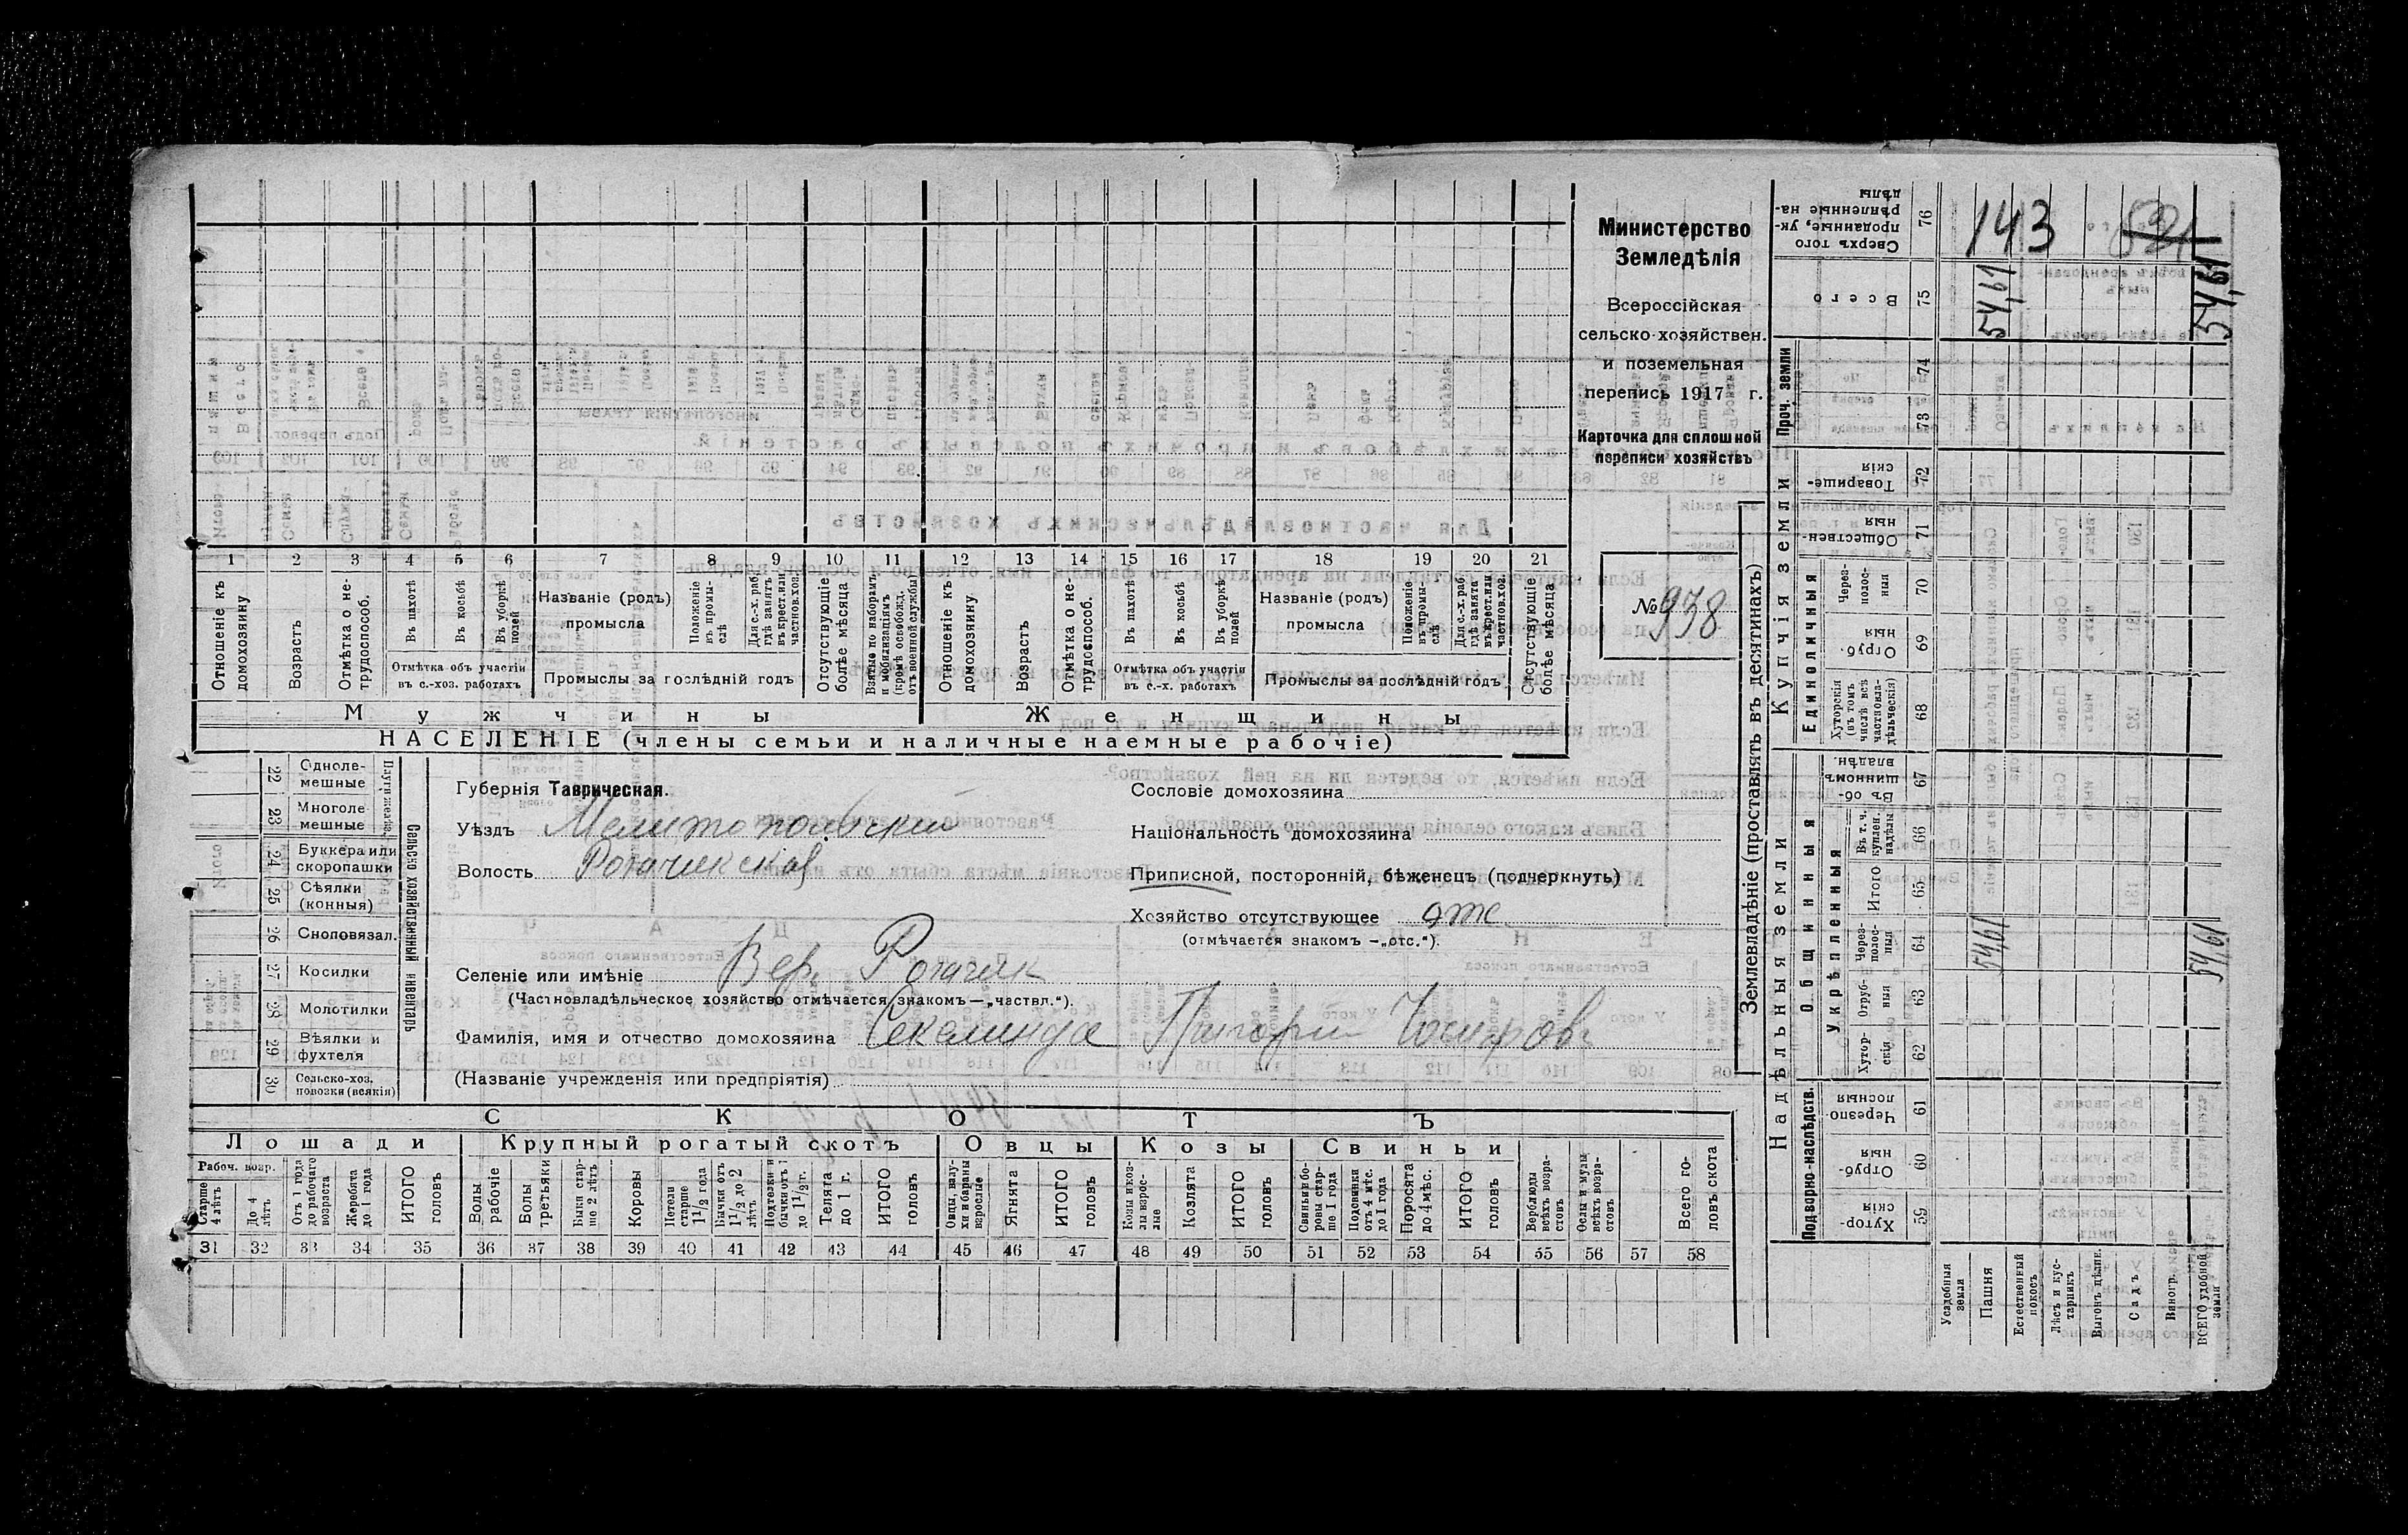 1 2 3 4 5 6 7 8 9 10 11 12 13 14 15 16 17 18 19 20 21
Отношеніе къ домохозяину
Возрастъ
Отмѣтка о не-трудоспособ.
Въ пахотѣ
Въ косьбѣ
Въ уборкѣ полей
Отмѣтка объ участіи
въ с.-хоз. работахъ
Названіе (родъ)
промысла
Положеніе въ промы-слѣ
Для с.-х. раб. гдѣ занятъ въ крест. или частнов. хоз.
Промыслы за послѣдній годъ
Отсутствующіе болѣе мѣсяца
Взятые по наборамъ и мобилизаціямъ (кромѣ освобожд. отъ военной службы)
Отношеніе къ домохозяину
Возрастъ
Отмѣтка о не-трудоспособ.
Въ пахотѣ
Въ косьбѣ
Въ уборкѣ полей
Отмѣтка объ участіи
въ с.-х. работахъ
Названіе (родъ)
промысла
Положеніе въ промы-слѣ
Для с.-х. раб. гдѣ занята въ крест. или частнов. хоз.
Промыслы за послѣдній годъ
Отсутствующіе болѣе мѣсяца
Мужчины Женщины
НАСЕЛЕНІЕ (члены семьи и наличные наемные рабочіе)
Министерство
Земледѣлія
Всероссійская
сельско-хозяйствен.
и поземельная
перепись 1917 г.
Карточка для сплошной
переписи хозяйствъ
№ 938
22 Однолемешные
23 Многолемешные
24 Буккера или скоропашки
25 Сѣялки (конныя)
26 Сноповязал.
27 Косилки
28 Молотилки
29 Вѣялки и фухтеля
30 Сельско-хоз. повозки (всякія)
Сельско хозяйственный инвентарь
Губернія Таврическая.
Уѣздъ Мелитопольский
Волость Рогачикская
Селеніе или имѣніе Вер. Рогачик
(Частновладѣльческое хозяйство отмѣчается знакомъ—„частвл.“).
Фамилія, имя и отчество домохозяина
(Названіе учрежденія или предпріятія)
Сословіе домохозяина
Національность домохозяина
Приписной, посторонній, бѣженецъ (подчеркнуть)
Хозяйство отсутствующее
(отмѣчается знакомъ —„отс.“).
СКОТЪ
Лошади Крупный рогатый скотъ Овцы Козы Свиньи
Рабоч. возр.
Старше 4 лѣтъ
До 4 лѣтъ
Отъ 1 года до рабочаго возраста
Жеребята до 1 года
ИТОГО головъ
Волы рабочіе
Волы третьяки
Быки стар-ше 2 лѣтъ
Коровы
Нетели старше 1 1/2 года
Бычки отъ 1 1/2 до 2 лѣтъ
Подтелки и бычки отъ 1 до 1 1/2 г.
Телята до 1 г.
ИТОГО головъ
Овцы, валу-хи и бараны взрослые
Ягнята
ИТОГО головъ
Козы и коз-лы взрос-лые
Козлята
ИТОГО головъ
Свиньи и бо-ровы стар-ше 1 года
Подсвинки отъ 4 мѣс. до 1 года
Поросята до 4 мѣс.
ИТОГО головъ
Верблюды всѣхъ возра-стовъ
Ослы и мулы всѣхъ возра-стовъ
Всего го-ловъ скота
31 32 33 34 35 36 37 38 39 40 41 42 43 44 45 46 47 48 49 50 51 52 53 54 55 56 57 58
Землевладѣніе (проставлять въ десятинахъ)
Надѣльныя земли Купчія земли Проч. земли
Подворно-наслѣдств.
Общинныя
Укрѣпленныя
Единоличныя
Хутор-скія 59
Отруб-ныя 60
Черезпо-лосныя 61
Хутор-скія 62
Отруб-ныя 63
Через-полос-ныя 64
Итого 65
Въ т. ч. куплен. надѣлы 66
Въ об-щинномъ владѣн. 67
Хуторскія (въ томъ числѣ всѣ частновла-дѣльческія) 68
Отруб-ныя 69
Через-полос-ныя 70
Обществен-ныя 71
Товарище-скія 72
73
74
Всего 75
Сверхъ того проданные, ук-рѣпленные на-дѣлы 76
Усадебныя земли
Пашня
Естественный покосъ
Лѣсъ и кус-тарникъ
Выгонъ дѣлин.
Садъ
Виногр.
ВСЕГО удобной земли
143
54,61
54,61
54,61
54,61